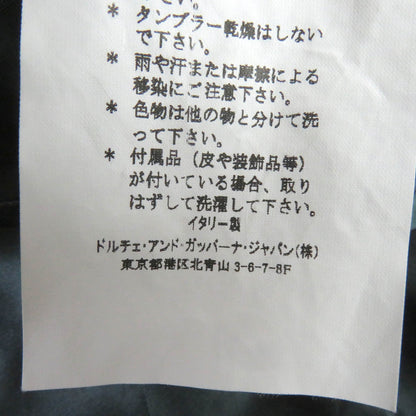 さい。
* タンブラー乾燥はしない
で下さい。
* 雨や汗または摩擦による
移染にご注意下さい。
* 色物は他の物と分けて洗
って下さい。
* 付属品（皮や装飾品等）
が付いている場合、取り
はずして洗濯して下さい。
イタリー製
ドルチェ・アンド・ガッバーナ・ジャパン(株)
東京都港区北青山 3-6-7-8F